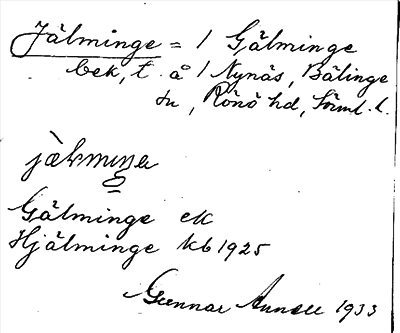 Jälminge = 1 Gälminge
bek, t. å 1 Nynäs, Bälinge
sn, Rönö hd, Sörml. l.
jälmiŋə
Gälminge ek
Hjälminge kb 1925
Gunnar 1933